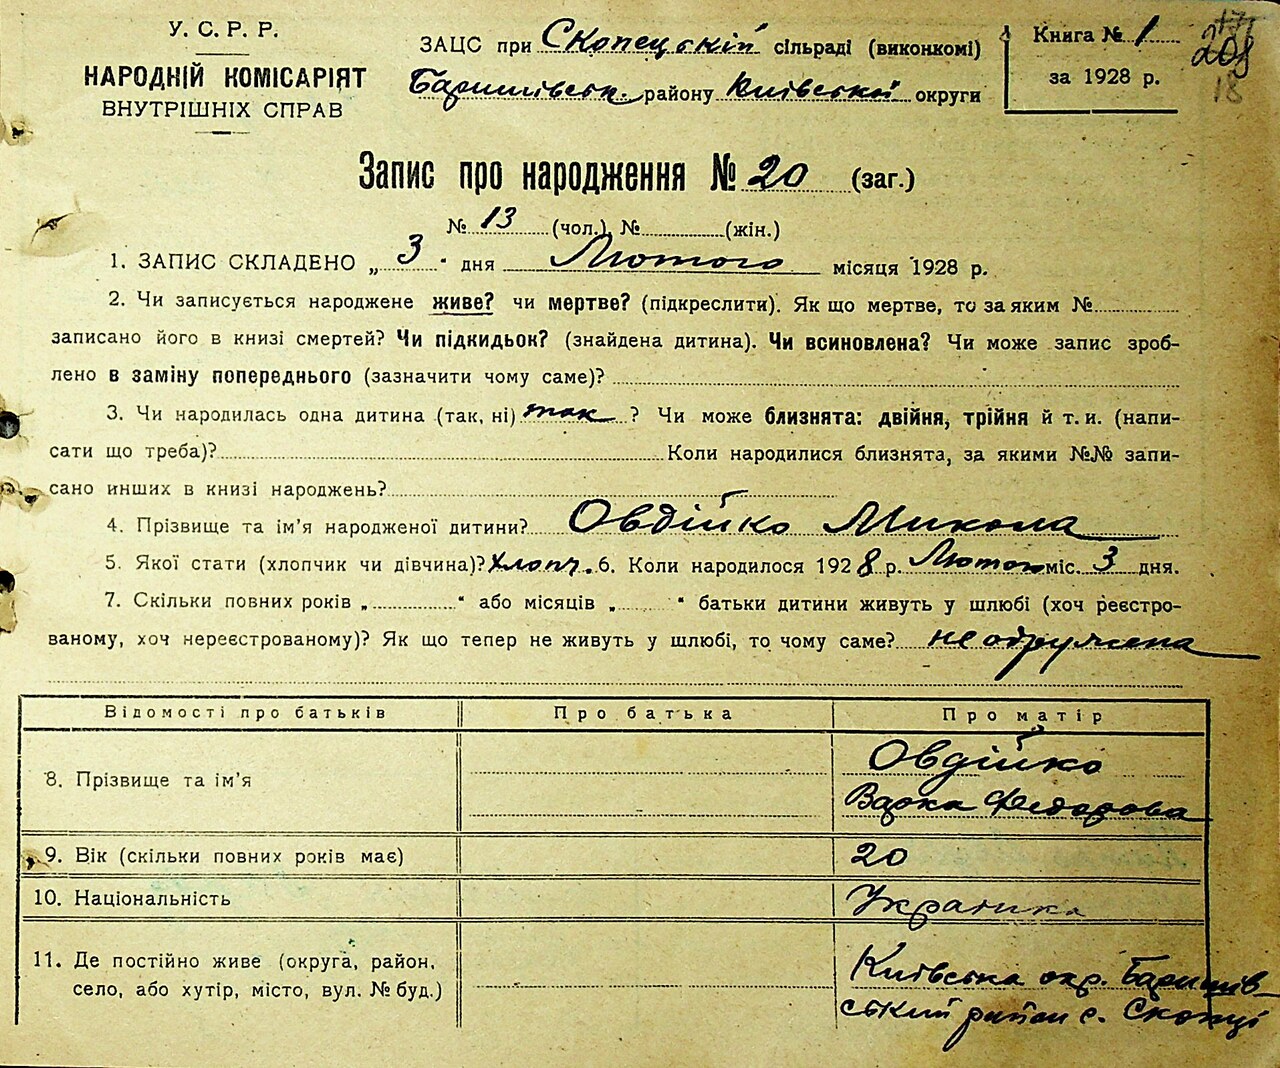 У. С. Р. Р.
НАРОДНІЙ КОМІСАРІЯТ
ВНУТРІШНІХ СПРАВ
ЗАЦС при Скопецькій сільраді (виконкомі)
Баришівськ. району Київської округи
Книга № 1
за 1928 р.
205
18
Запис про народження № 20 (заг.)
№ 13 (чол.) № (жін.)
1. ЗАПИС СКЛАДЕНО „ 3 " дня Лютого місяця 1928 р.
2. Чи записується народжене живе? чи мертве? (підкреслити). Як що мертве, то за яким №
записано його в книзі смертей? Чи підкидьок? (знайдена дитина). Чи всиновлена? Чи може запис зроб-
лено в заміну попереднього (зазначити чому саме)?
3. Чи народилась одна дитина (так, ні) так ? Чи може близнята: двійня, трійня й т. и. (напи-
сати що треба)? Коли народилися близнята, за якими №№ запи-
сано инших в книзі народжень?
4. Прізвище та ім'я народженої дитини? Овдійко Микола
5. Якої стати (хлопчик чи дівчина)? хлопч. 6. Коли народилося 1928 р. Лютого міс. 3 дня.
7. Скільки повних років „ " або місяців „ " батьки дитини живуть у шлюбі (хоч реєстро-
ваному, хоч нереєстрованому)? Як що тепер не живуть у шлюбі, то чому саме? не обружена
Відомості про батьків Про батька Про матір
8. Прізвище та ім'я Овдійко
Варка Федорова
9. Вік (скільки повних років має) 20
10. Національність Українка
11. Де постійно живе (округа, район, Київська окр. Баришів-
село, або хутір, місто, вул. № буд.) ський район с. Скопці